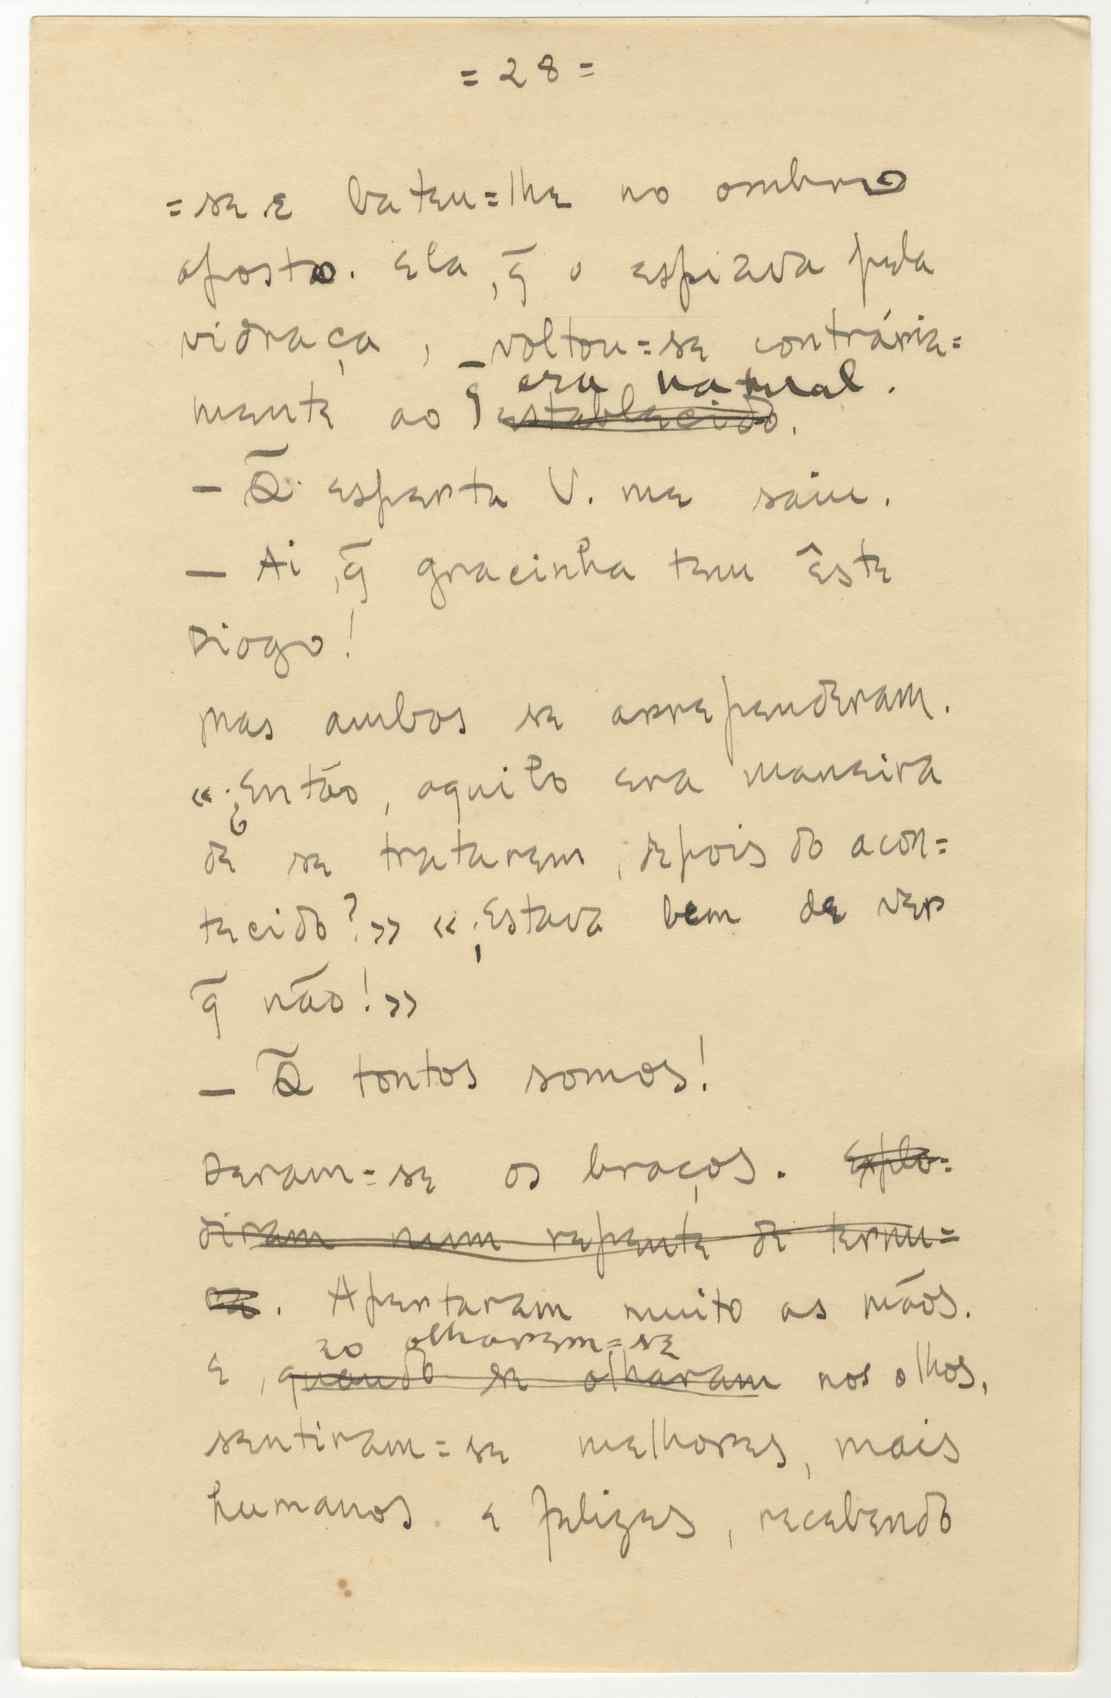 = 28 =
=se e bateu=lhe no ombro
oposto. Ela, q̃ o espiava pela
vidraça, voltou=se contrária=
era natural.
mente ao q̃ estabelecido.
— Q̃ esperta V. me saiu.
— Ai, q̃ gracinha tem êste
Diogo!
Mas ambos se arrependeram.
«¿Então, aquilo era maneira
de se tratarem, depois do acon=
tecido?» «¡Estava bem de ver
q̃ não!»
— Q̃ tontos somos!
Deram=se os braços. Explo=
diram num repente de ternu=
ra. Apertaram muito as mãos.
ao olharem=se
E, quando se olharam nos olhos,
sentiram=se melhores, mais
humanos e felizes, recebendo